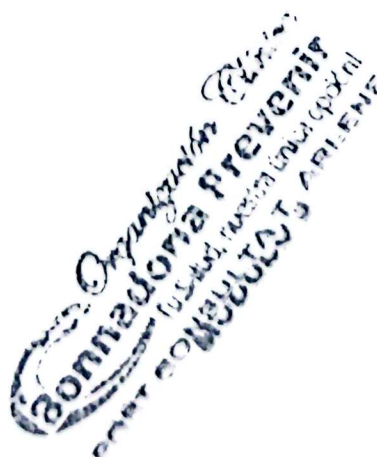 Organización Clínica
Bonnadona Prevenir
Tu Salud, nuestra única
ARLENE